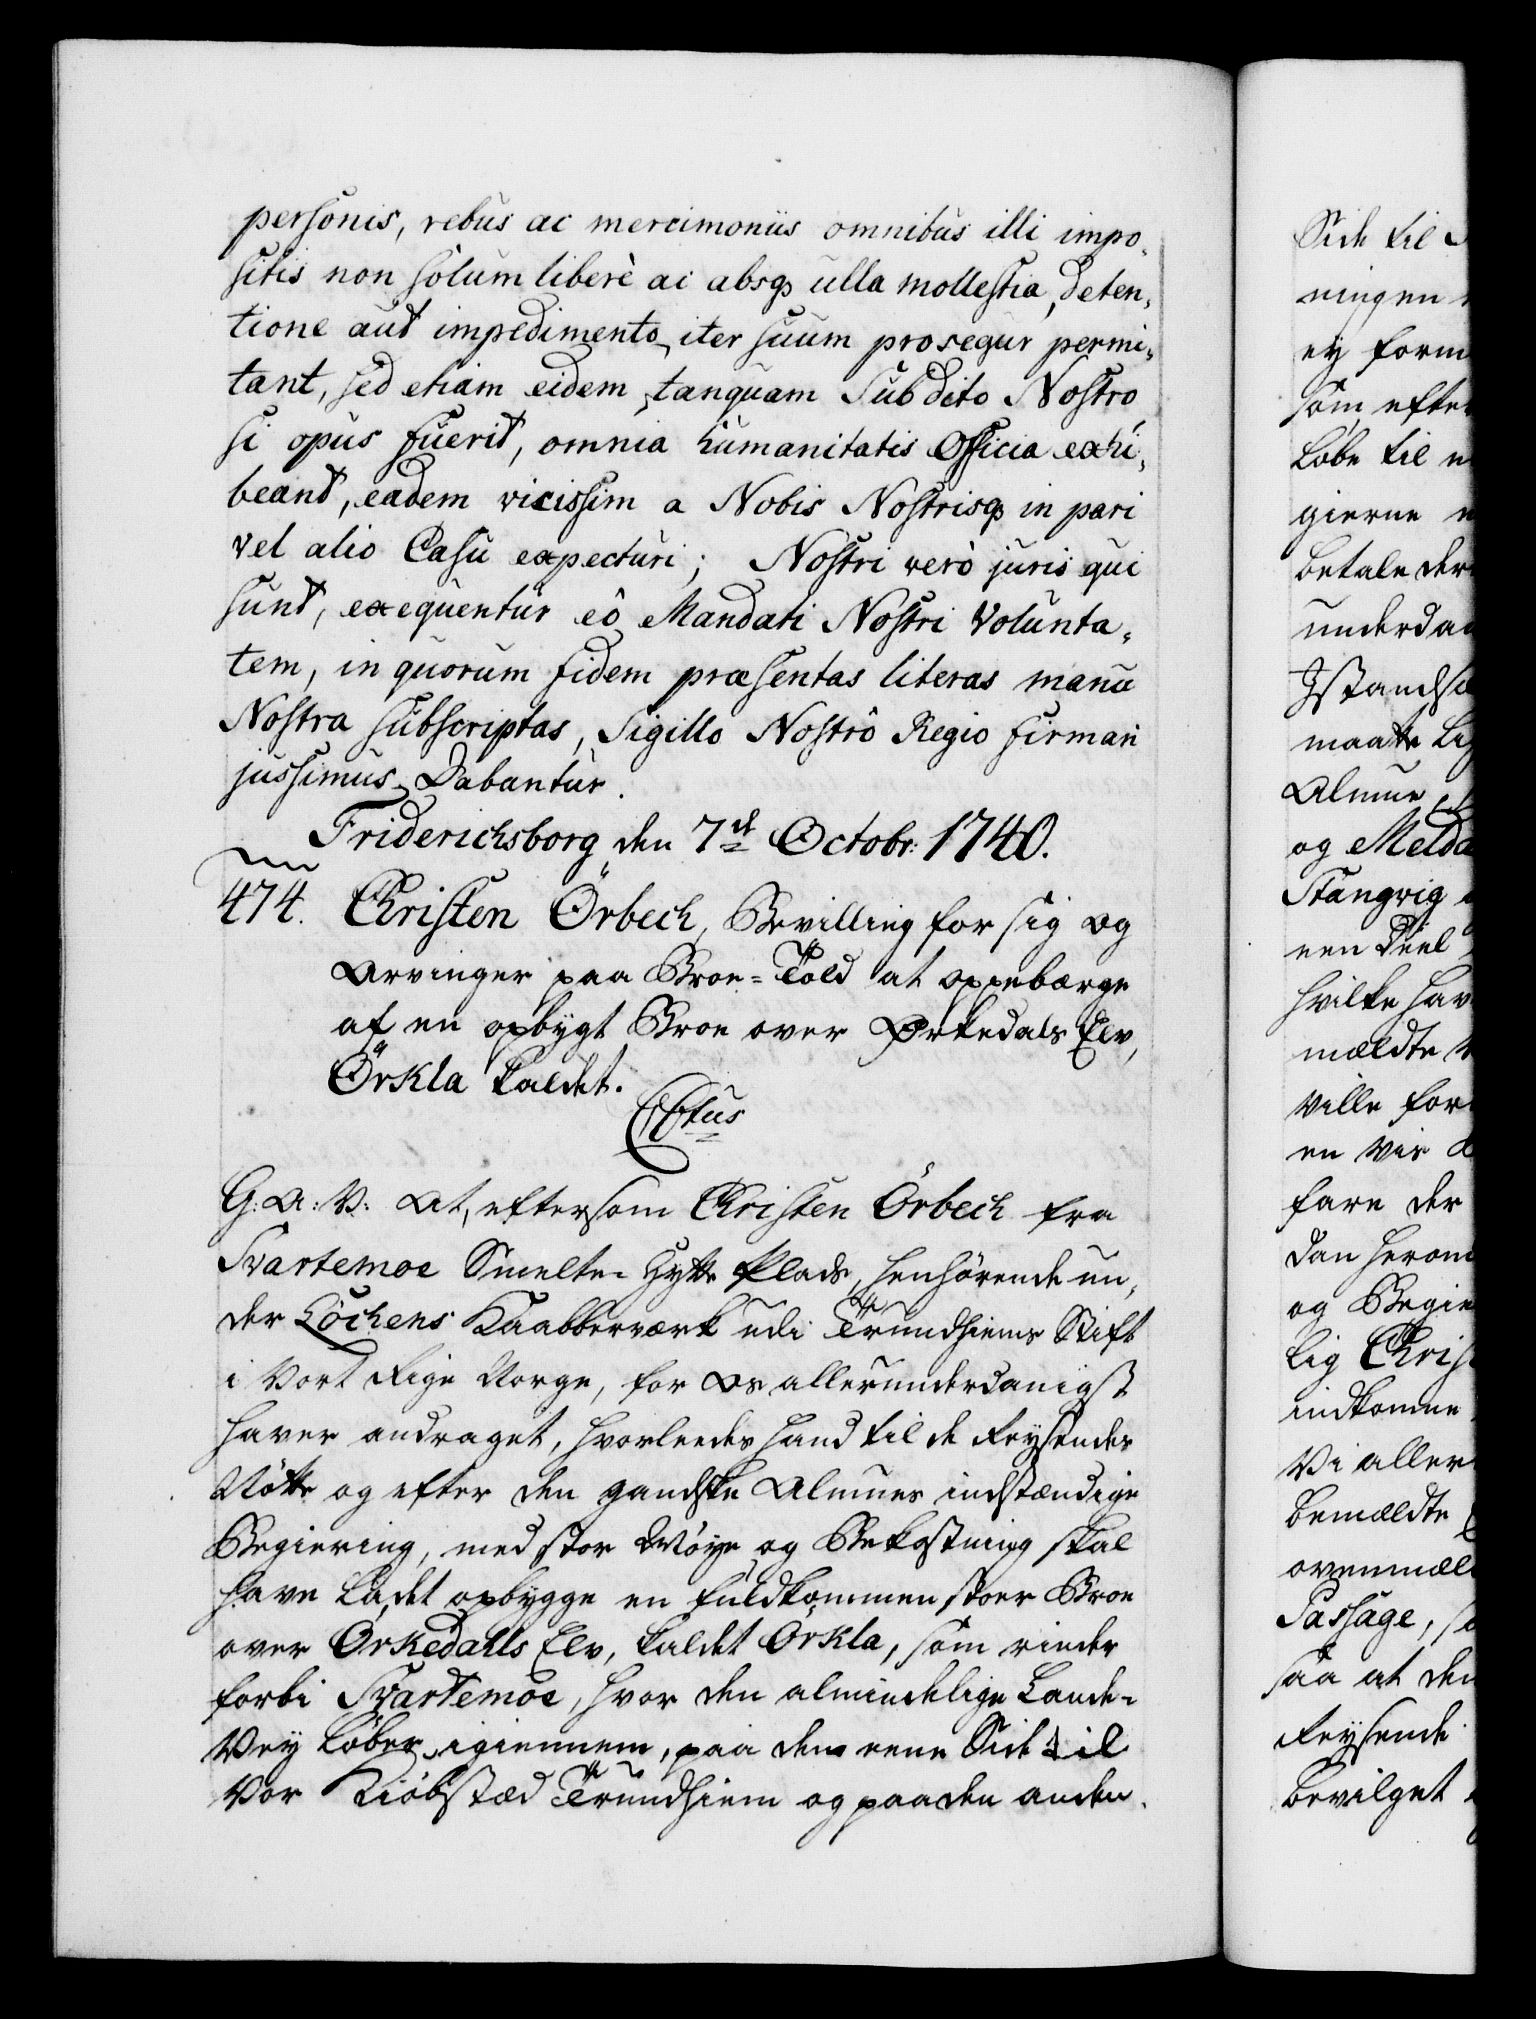 personis, rebus ac mercimoniis omnibus illi impo-
sitis non solum liberè ac absqs ulla mollestia, deten-
tione aut impedimento, iter suum prosequr permi-
tant, sed etiam eidem, tanquam Subdito Nostro
si opus fuerit, omnia humanitatis Officia exhi-
beant, eadem vicissim a Nobis Nostrisqs in pari
vel alio Casu expecturi; Nostri verò juris qui
sunt, exequentur eô Mandati Nostri Volunta-
tem, in quorum fidem præsentas literas manu
Nostra subscriptas, Sigillo Nostrô Regio firmari
jussimus, Dabantur.
Friderichsborg den 7de Octobr: 1740.
474. Christen Örbech, Bevilling for sig og
Arvinger paa Broe-Told at oppebærge
af en opbygt Broe over Örkedals Elv,
Örkla kaldet.
C6tus
G: A: V: At, eftersom Christen Örbech fra
Svartemoe Smelte-Hytte Plads, henhørende un-
der Löchens Kaabberværk udi Trundhiems Stift
i Vort Rige Norge, for Os allerunderdanigst
haver andraget, hvorleedes hand til de Reysendes
Nötte og efter den gandske Almues indstændige
Begiering, med stor Möye og Bekostning skal
have ladet opbygge en fuldkommen stoer Broe
over Orkedahls Elv, kaldet Örkla, som rinder
forbi Svartemoe, hvor den almindelige Lande-
Vey löber igiennem, paa den eene Side til
Vor Kiöbstæd Trundhiem og paa den anden
Side til
ningen
ey form
som efter
löbe til
gierne
betale der
underda
Istandsæ
maatte
Almue
og Melda
Stangvig
een Deel
hvilke hav
mældte
ville for
en vis
fare der
dan herom
og Begie
lig Chris
indkomne
Vi aller
bemældte
ovenmæl
Passage,
saa at den
Reysende
bevilget